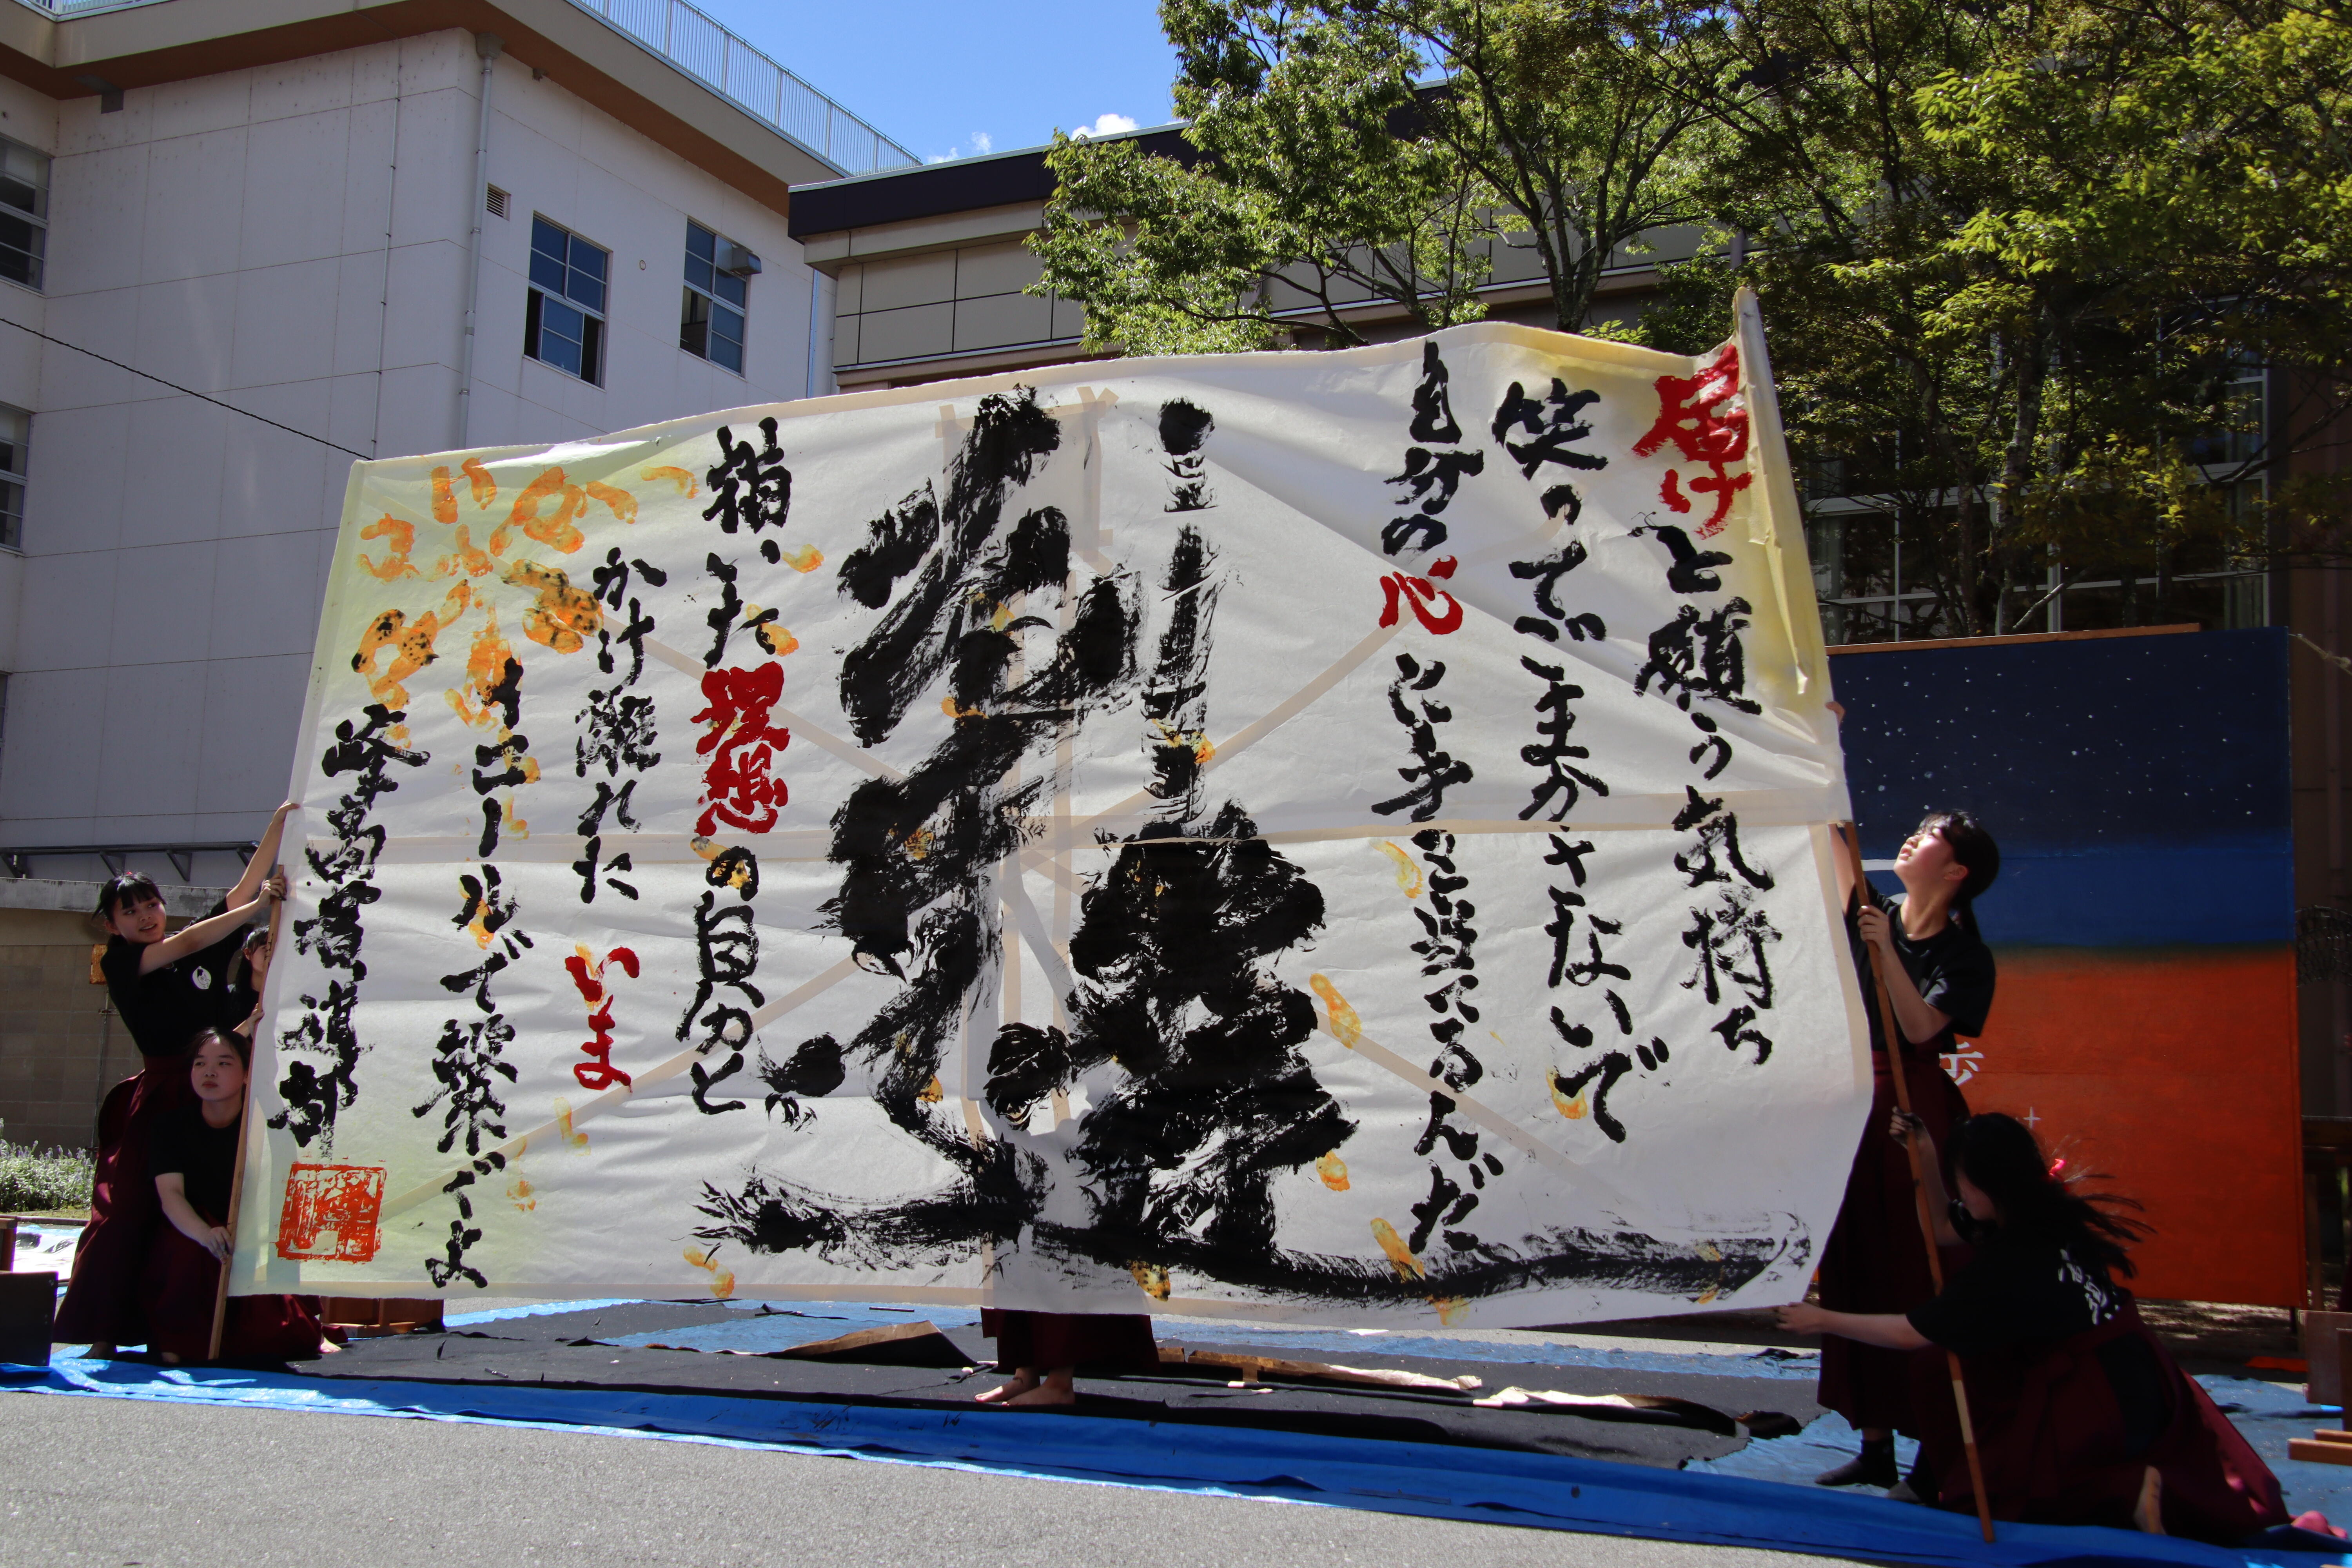 届けと願う気持ち
笑ってごまかさないで
自分の心に手を当てるんだ
描いた理想の自分と
かけ離れた いま
イコールで繋ぐよ
峰高書道部